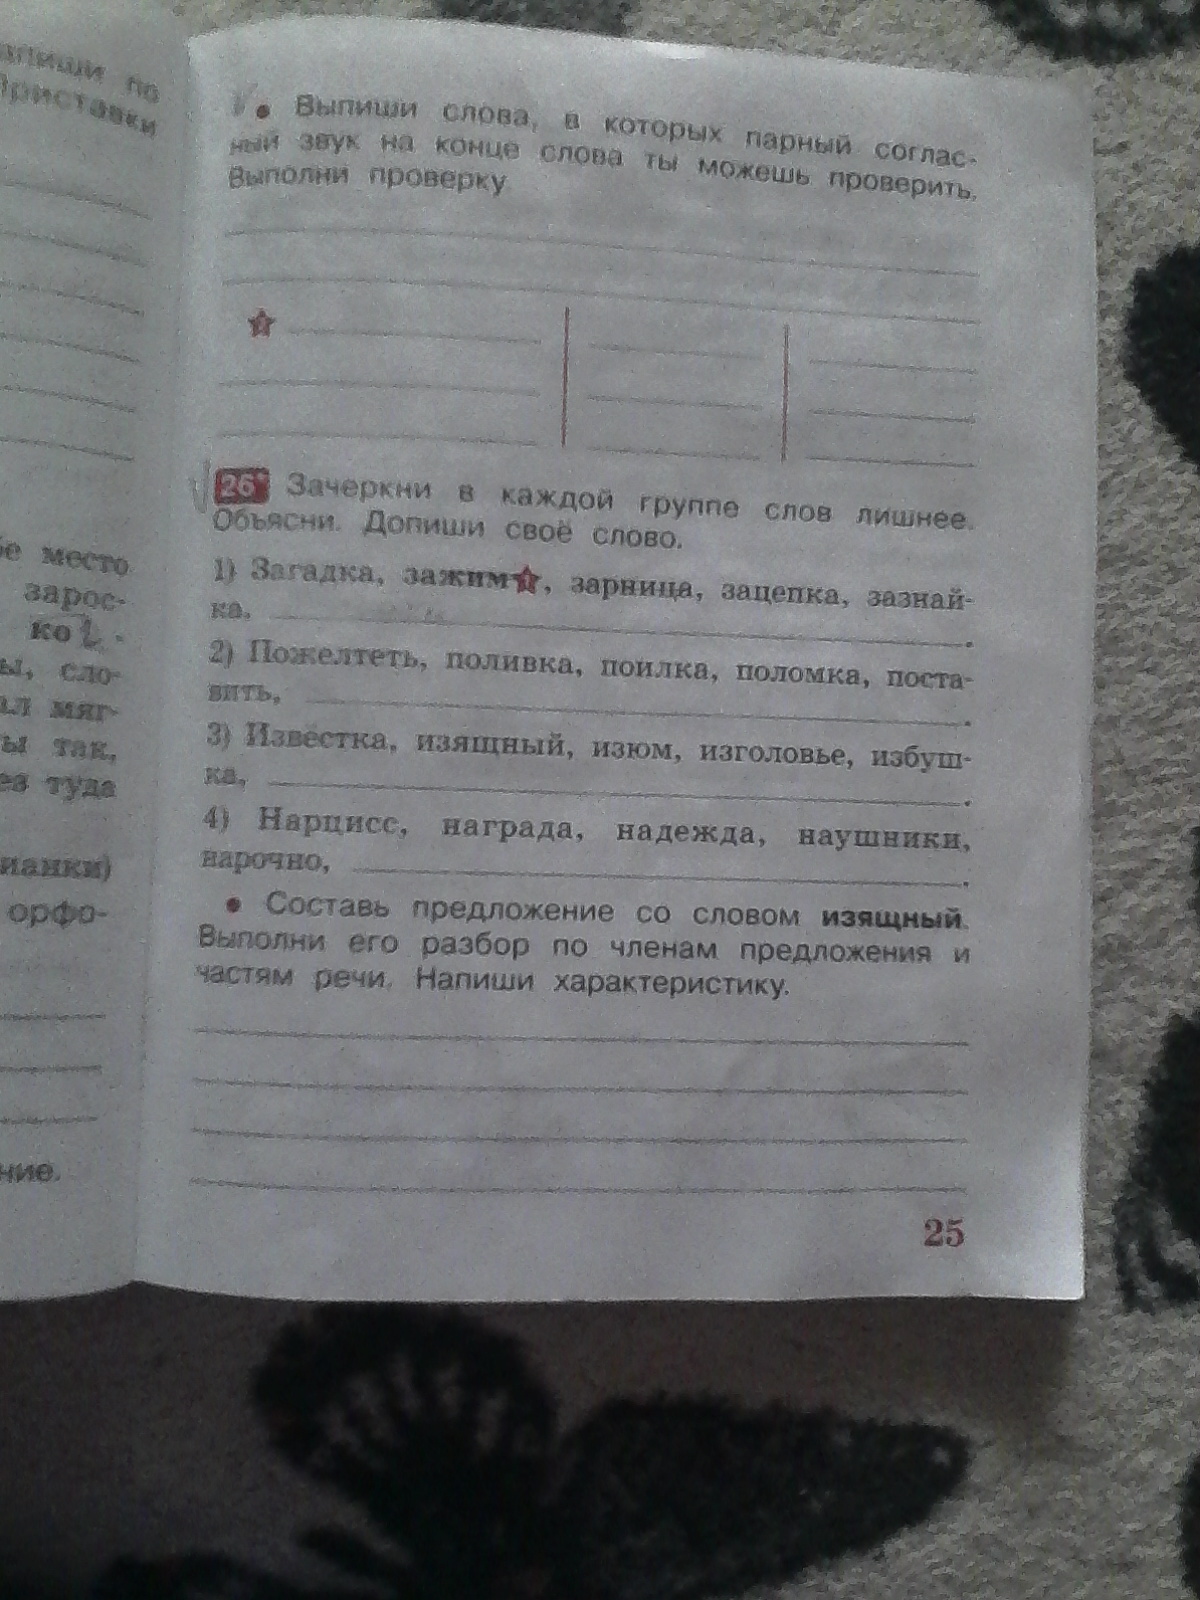 апиши по
Приставки
• Выпиши слова, в которых парный соглас-
ный звук на конце слова ты можешь проверить.
Выполни проверку
26* Зачеркни в каждой группе слов лишнее.
Объясни. Допиши своё слово.
1) Загадка, зажим, зарница, зацепка, зазнай-
ка,
2) Пожелтеть, поливка, поилка, поломка, поста-
вить,
3) Извёстка, изящный, изюм, изголовье, избуш-
ка,
4) Нарцисс, награда, надежда, наушники,
нарочно,
• Составь предложение со словом изящный.
Выполни его разбор по членам предложения и
частям речи. Напиши характеристику.
25
место
зарос-
ко
ы, сло-
ал мяг-
ы так,
туда
ианки)
орфо-
ние.